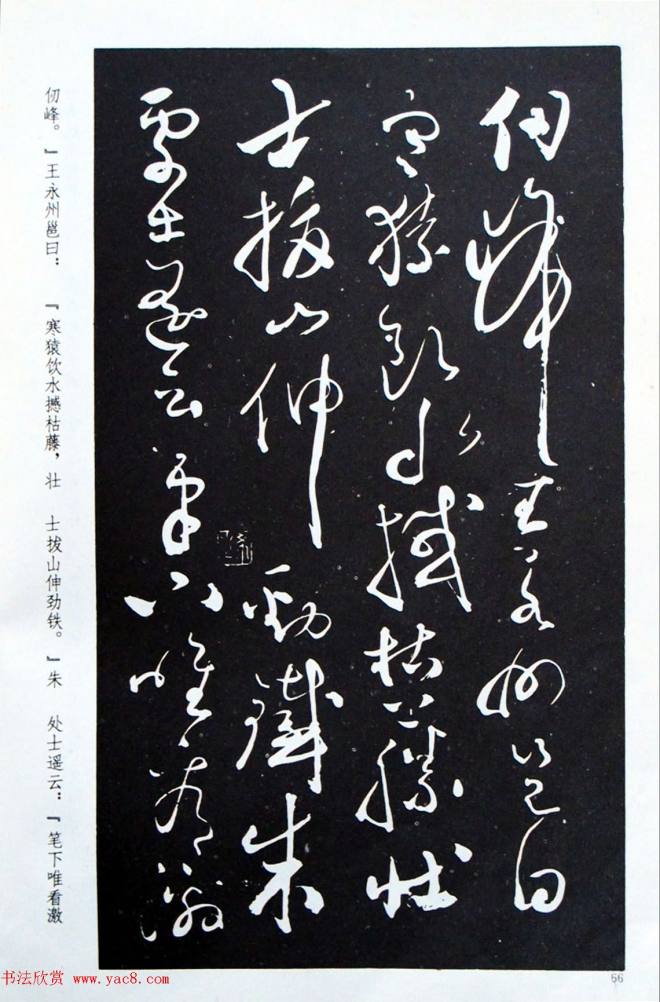 仞峰王永州邕曰
寒猿饮水撼枯藤壮
士拔山伸劲铁朱
处士遥云笔下唯看激
仞峰。』王永州邕曰：『寒猿饮水撼枯藤，壮 士拔山伸劲铁。』朱 处士遥云：『笔下唯看激
书法欣赏 www.yac8.com
66